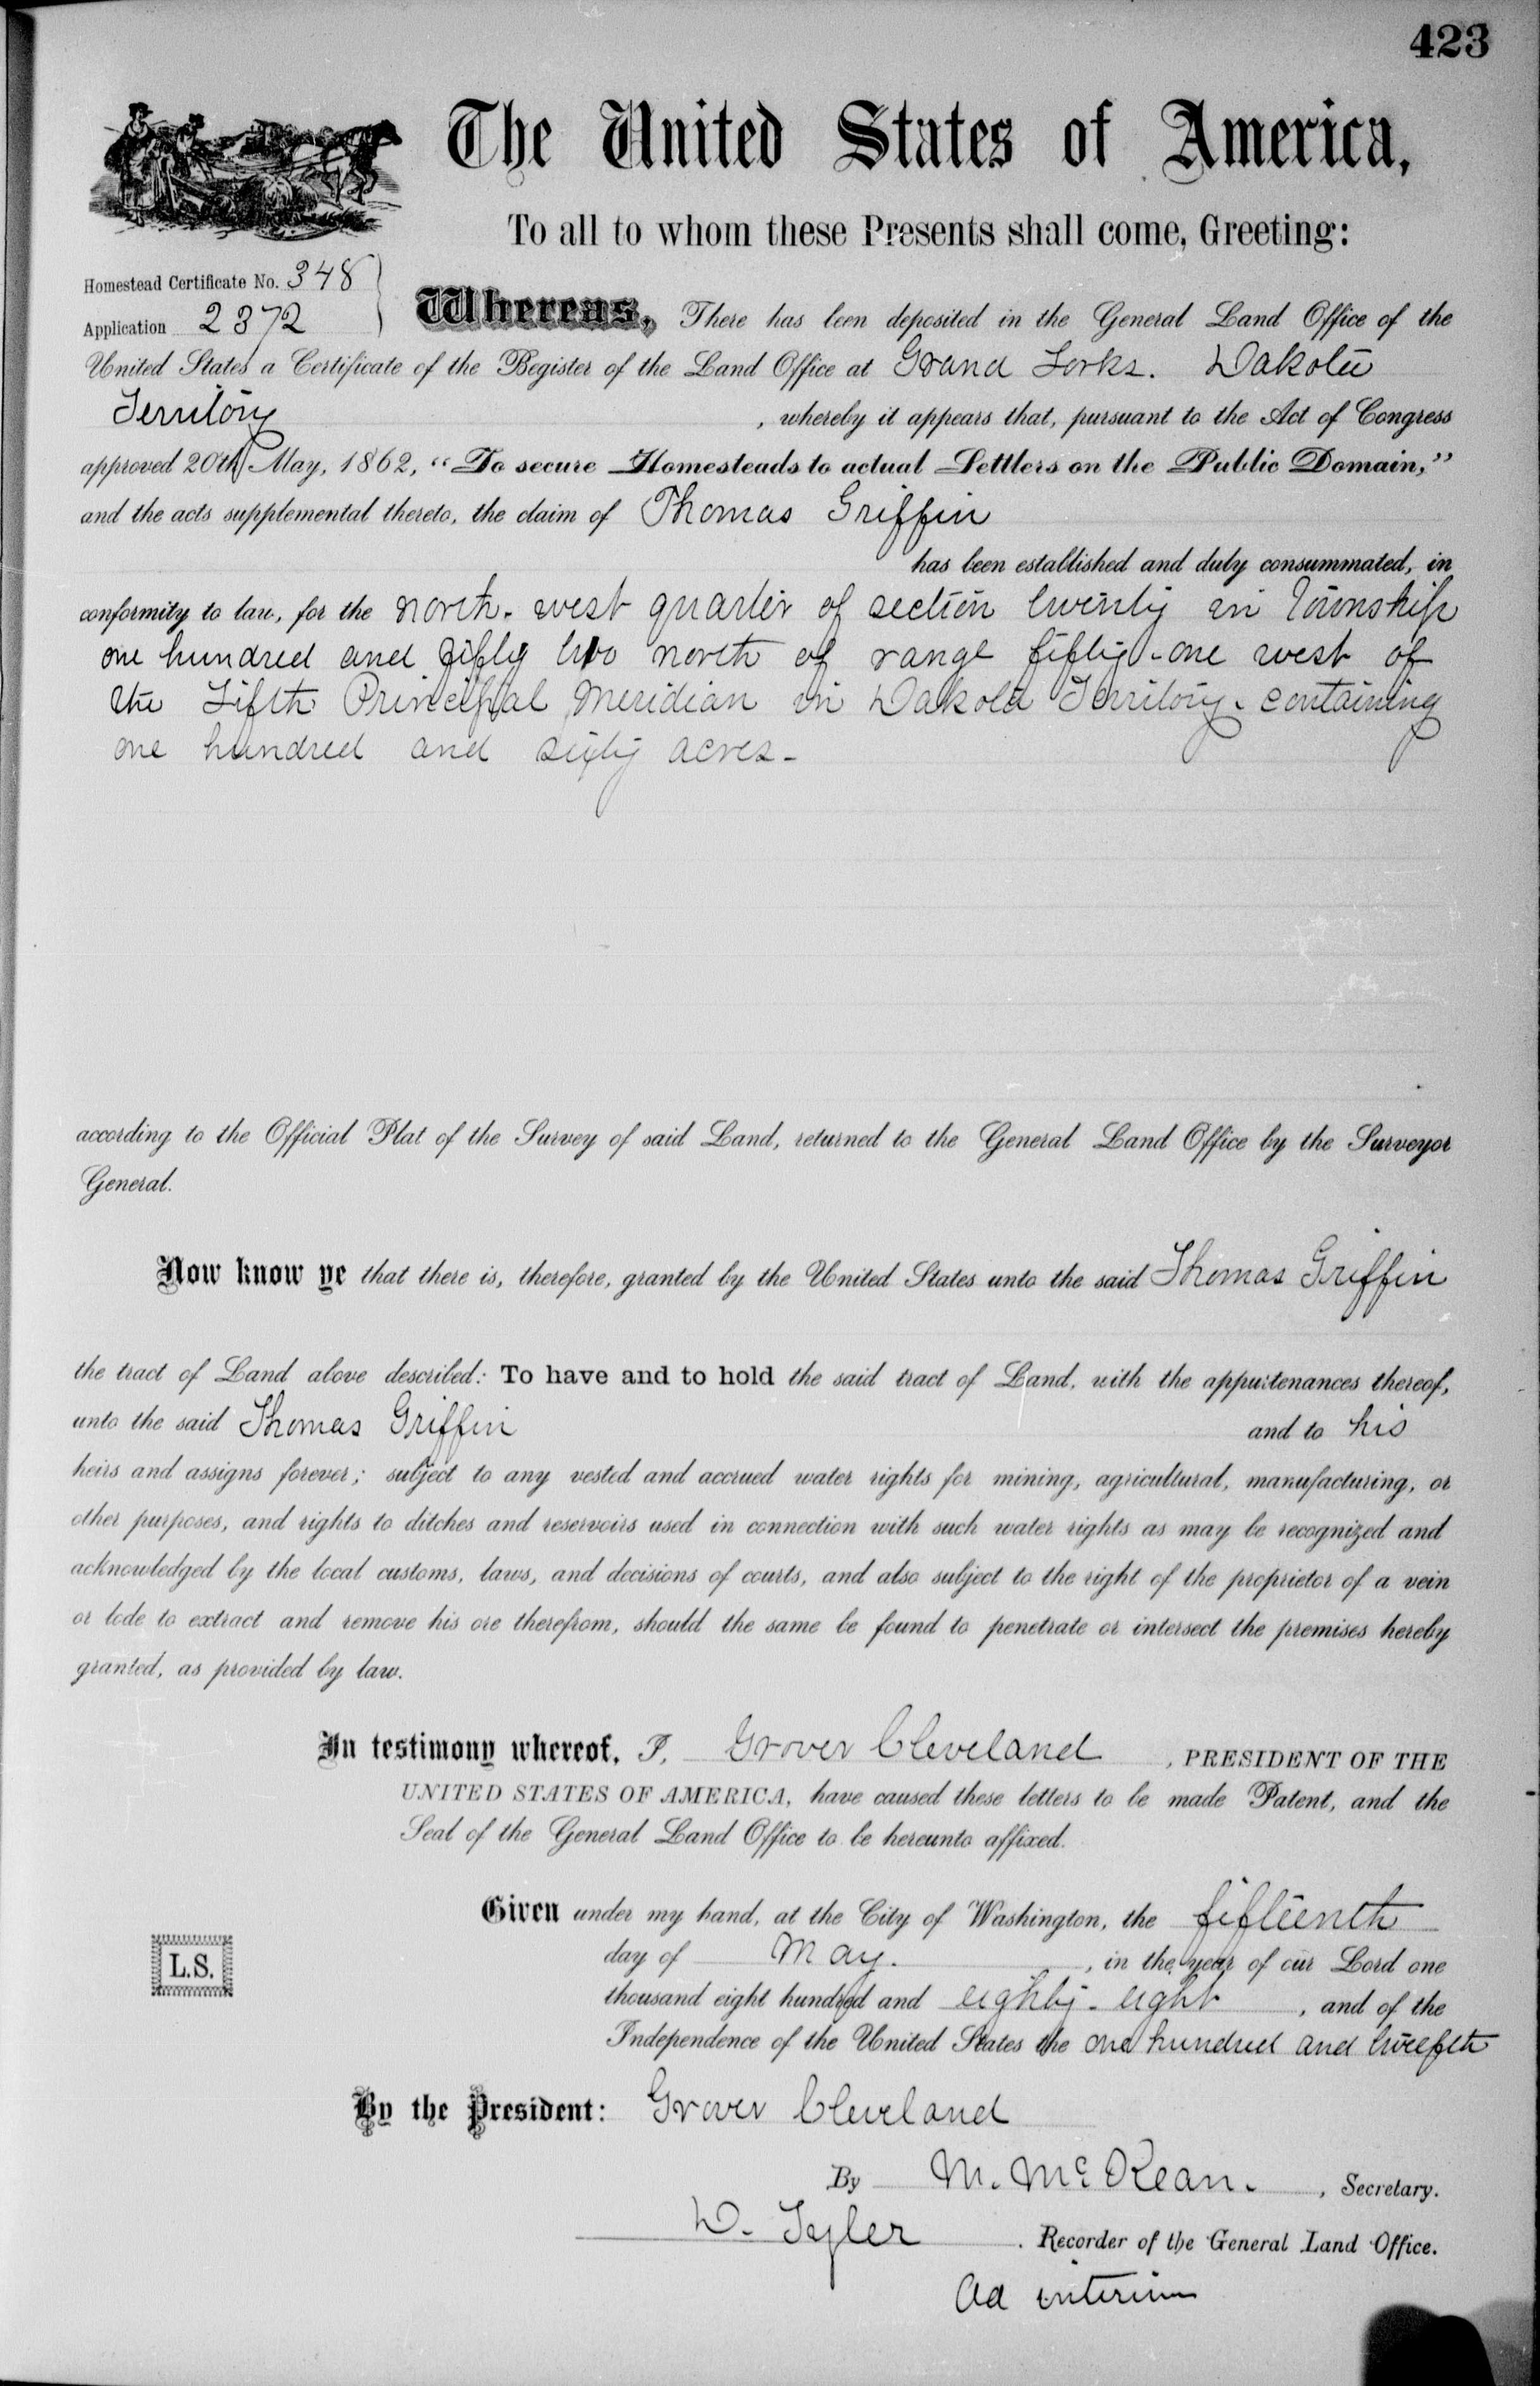 423
The United States of America,
To all to whom these Presents shall come, Greeting:
Homestead Certificate No. 348
Application 2372
Whereas, There has been deposited in the General Land Office of the
United States a Certificate of the Register of the Land Office at Grand Forks. Dakota
Territory , whereby it appears that, pursuant to the Act of Congress
approved 20th May, 1862, “To secure Homesteads to actual Settlers on the Public Domain,”
and the acts supplemental thereto, the claim of Thomas Griffin
has been established and duly consummated, in
conformity to law, for the north-west quarter of section twenty in Township
one hundred and fifty two north of range fifty-one west of
the Fifth Principal Meridian in Dakota Territory. containing
one hundred and sixty acres-
according to the Official Plat of the Survey of said Land, returned to the General Land Office by the Surveyor
General.
Now know ye that there is, therefore, granted by the United States unto the said Thomas Griffin
the tract of Land above described: To have and to hold the said tract of Land, with the appurtenances thereof,
unto the said Thomas Griffin and to his
heirs and assigns forever; subject to any vested and accrued water rights for mining, agricultural, manufacturing, or
other purposes, and rights to ditches and reservoirs used in connection with such water rights as may be recognized and
acknowledged by the local customs, laws, and decisions of courts, and also subject to the right of the proprietor of a vein
or lode to extract and remove his ore therefrom, should the same be found to penetrate or intersect the premises hereby
granted, as provided by law.
In testimony whereof, I, Grover Cleveland , PRESIDENT OF THE
UNITED STATES OF AMERICA, have caused these letters to be made Patent, and the
Seal of the General Land Office to be hereunto affixed.
Given under my hand, at the City of Washington, the fifteenth
day of May. , in the year of our Lord one
thousand eight hundred and eighty-eight , and of the
Independence of the United States the one hundred and twelfth
L.S.
By the President: Grover Cleveland
By M. McKean. , Secretary.
D. Tyler . Recorder of the General Land Office.
Ad interim